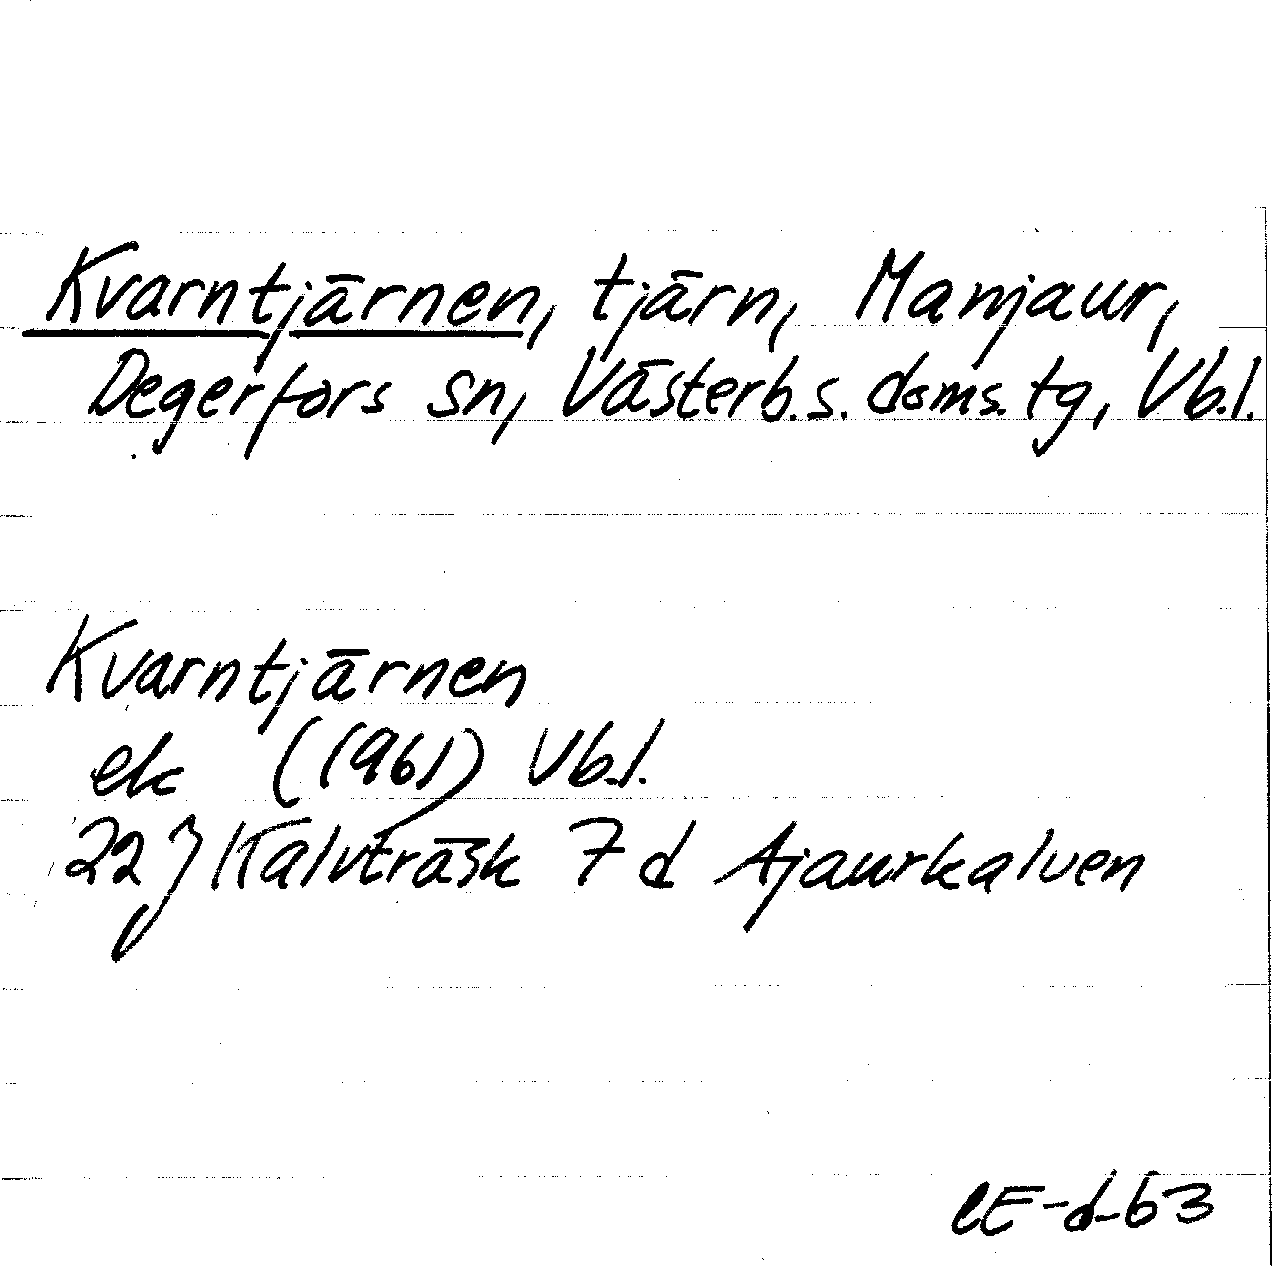 Kvarntjärnen, tjärn, Manjaur,
Degerfors sn, Västerb.s. doms.tg, Vb.l.
Kvarntjärnen
ek (1961) Vb.l.
22 J Kalvträsk 7 d Ajaurkalven
CE-d-63